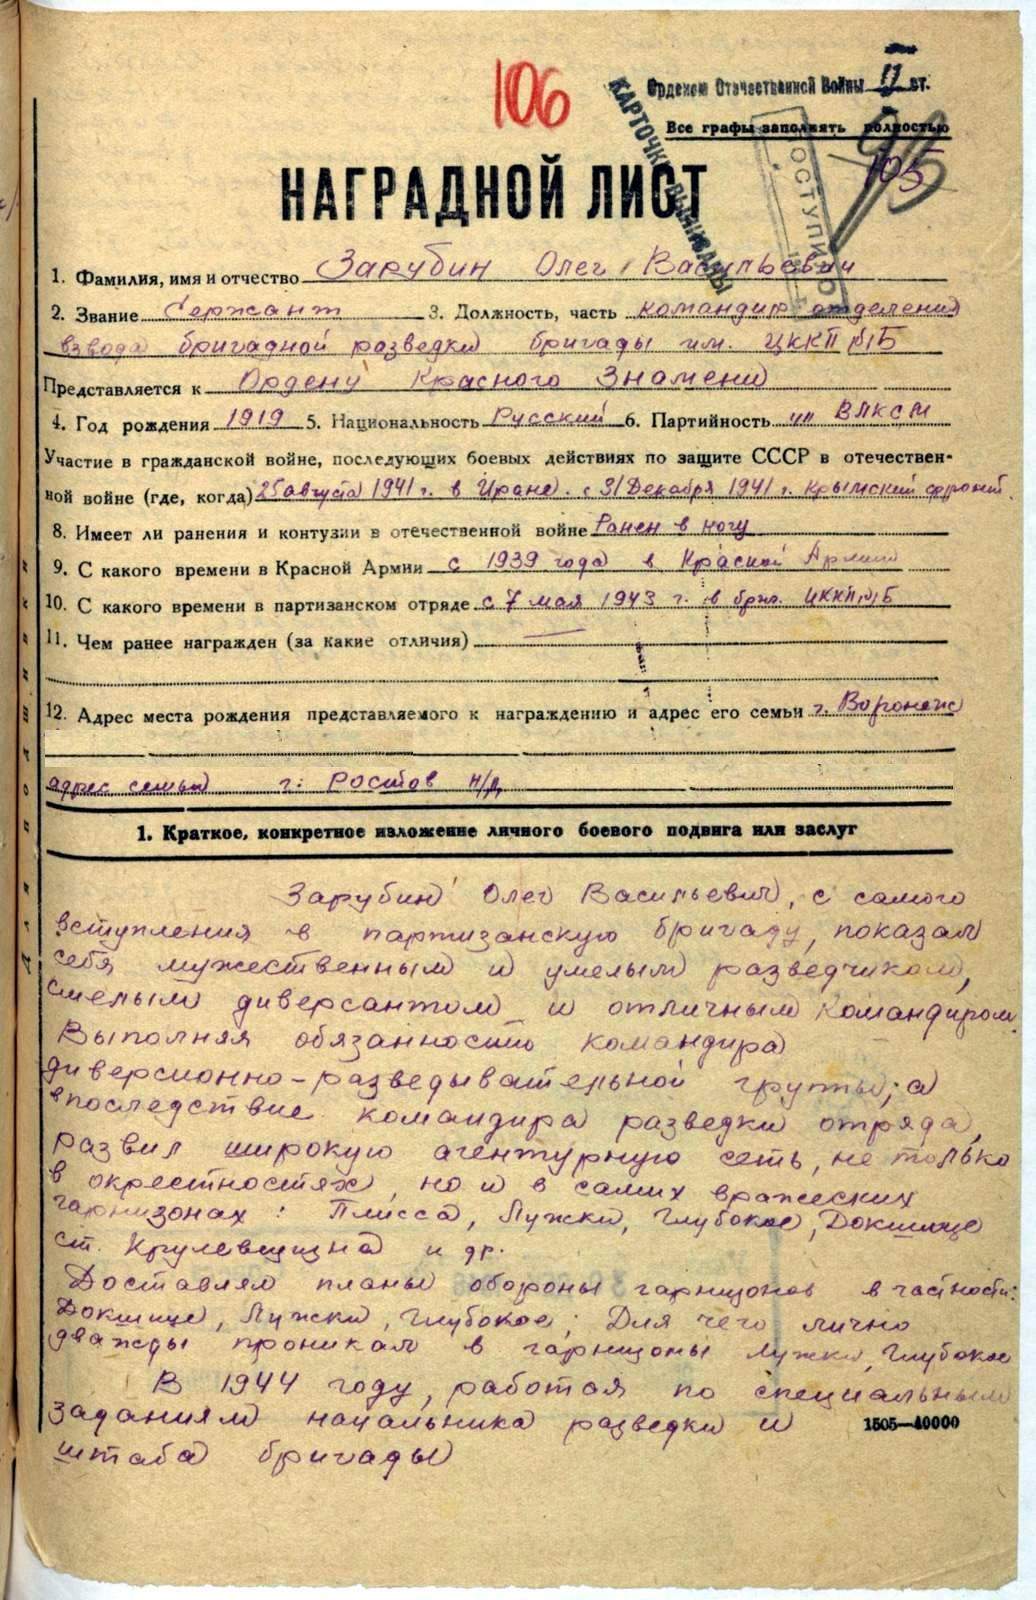 106
Орденом Отечественной Войны II ст.
КАРТОЧК
Все графы заполнять полностью
105
НАГРАДНОЙ ЛИСТ
1. Фамилия, имя и отчество Зарубин Олег Васильевич
2. Звание Сержант 3. Должность, часть командир отделения
взвода бригадной разведки бригады им. ЦККП(б)Б
Представляется к Ордену Красного Знамени
4. Год рождения 1919 5. Национальность Русский 6. Партийность чл ВЛКСМ
Участие в гражданской войне, последующих боевых действиях по защите СССР в отечествен-
ной войне (где, когда) 25 августа 1941 г. в Иране. с 31 Декабря 1941 г. Крымский фронт.
8. Имеет ли ранения и контузии в отечественной войне Ранен в ногу
9. С какого времени в Красной Армии с 1939 года в Красной Армии
10. С какого времени в партизанском отряде с 7 мая 1943 г. в бриг. ЦККП(б)Б
11. Чем ранее награжден (за какие отличия) —
12. Адрес места рождения представляемого к награждению и адрес его семьи г. Воронеж
адрес семьи г. Ростов н/Д.
1. Краткое, конкретное изложение личного боевого подвига или заслуг
Зарубин Олег Васильевич, с самого
вступления в партизанскую бригаду, показал
себя мужественным и умелым разведчиком,
смелым диверсантом и отличным командиром.
Выполняя обязанность командира
диверсионно-разведывательной группы, а
впоследствие командира разведки отряда,
развил широкую агентурную сеть, не только
в окрестностях, но и в самих вражеских
гарнизонах: Плисса, Лужки, Глубокое, Докшице
ст. Крулевщизна и др.
Доставлял планы обороны гарнизонов в частности:
Докшице, Лужки, Глубокое; Для чего лично
дважды проникал в гарнизоны Лужки, Глубокое
В 1944 году, работая по специальным
заданиям начальника разведки и
1505—40000
штаба бригады